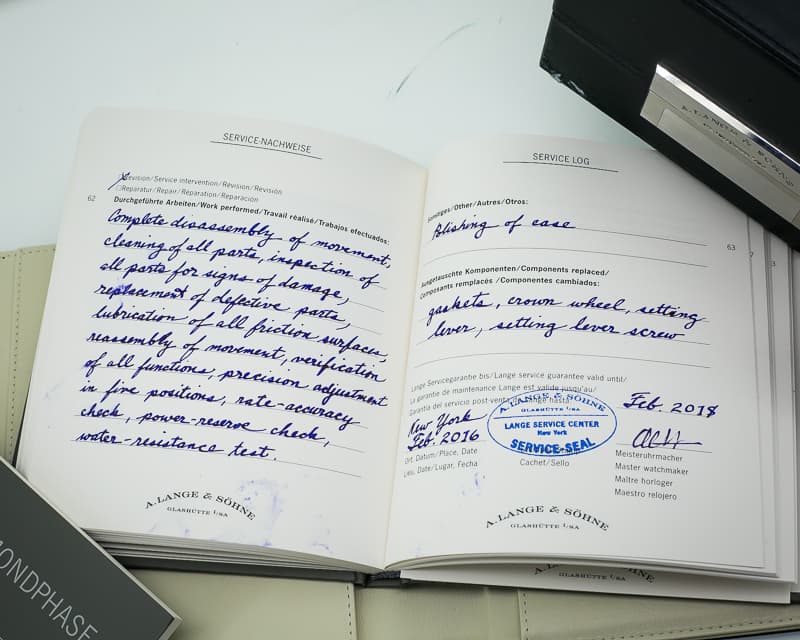 SERVICE-NACHWEISE
Revision/Service intervention/Révision/Revisión
Reparatur/Repair/Réparation/Reparación
Durchgeführte Arbeiten/Work performed/Travail réalisé/Trabajos efectuados:
62
Complete disassembly of movement,
cleaning of all parts, inspection of
all parts for signs of damage,
replacement of defective parts,
lubrication of all friction surfaces,
reassembly of movement, verification
of all functions, precision adjustment
in five positions, rate-accuracy
check, power-reserve check,
water-resistance test.
A. LANGE & SÖHNE
GLASHÜTTE I/SA
SERVICE LOG
Sonstiges/Other/Autres/Otros:
Polishing of case
63
Ausgetauschte Komponenten/Components replaced/
Composants remplacés/Componentes cambiados:
gaskets, crown wheel, setting
lever, setting lever screw
Lange Servicegarantie bis/Lange service guarantee valid until/
La garantie de maintenance Lange est valide jusqu'au/
Garantía del servicio post-venta de Lange hasta:
Feb. 2018
New York
Feb. 2016
Ort, Datum/Place, Date
Lieu, Date/Lugar, Fecha
A. LANGE & SÖHNE
GLASHÜTTE I/SA
LANGE SERVICE CENTER
New York
SERVICE-SEAL
Cachet/Sello
Meisteruhrmacher
Master watchmaker
Maître horloger
Maestro relojero
A. LANGE & SÖHNE
GLASHÜTTE I/SA
GLASHÜTTE I/SA
3
A. LANGE & SÖHNE
ONDPHASE